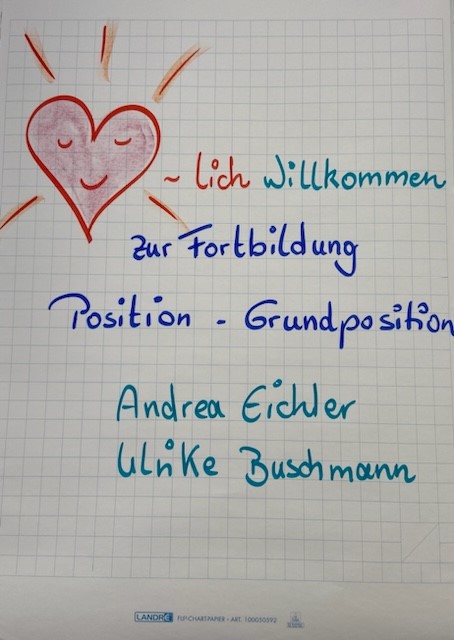 ~ lich Willkommen
zur Fortbildung
Position - Grundposition
Andrea Eichler
Ulrike Buschmann
LANDRÉ FLIP-CHART-PAPIER • ART. 100050592